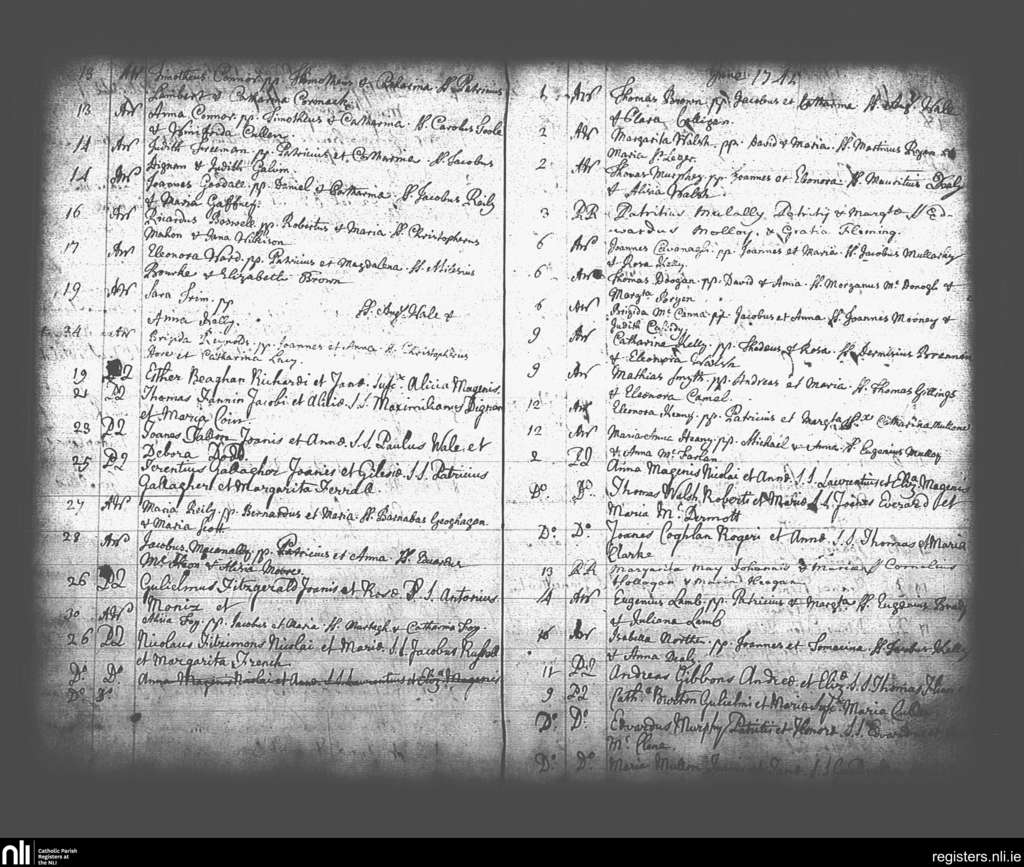 13 Ar Timotheus Connor pp. Thimotheus & Catharina Sp. Patricius
Lambert & Catharina Cormack
13 Ar Anna Connor pp. Timotheus & Catharina. Sp. Carolus Toole
& Winifrida Cullen
14 Ar Judith Freeman pp. Patricius et Catharina Sp. Jacobus
Dignan & Judith Galvin
14 Ar Joannes Goodall pp. Daniel & Catharina Sp. Jacobus Reily
& Maria Gaffney
16 Ar Ricardus Boswell pp. Robertus & Maria Sp. Christopherus
Mahon & Jana Wilkison
17 Ar Eleonora Ward pp. Patricius et Magdalena Sp.
Bourke & Elizabeth Brown
19 Ar Sara Trim. pp
Sp. Augt. Hale &
Anna Kelly
Ar Brigida Reynods. pp. Joannes et Anna Sp. Christopherus
Dore et Catharina Lacy
19 DD Esther Beaghan Richardi et Janæ. Suscx. Alicia Magenis
21 DD Thomas Fannin Jacobi et Aliciæ S.S. Maximilianus Dignan
et Maria Coin
23 DD Joanes Talbon Joanis et Annæ S.S. Paulus Wale, et
Debora Dodd
25 DD Terentius Gallagher Joanis et Gilesiæ S.S. Patricius
Gallagher et Margarita Ferrall
27 Ar Maria Reily pp. Bernardus et Maria. Sp. Barnabas Geoghagan
& Maria Scott
28 Ar Jacobus Maconally pp. Patricius et Anna Sp.
& Alicia Moore
26 DD Gulielmus Fitzgerald Joanis et Rosæ S.S. Antonius
Moniz et
30 Ar Alicia Foy pp. Jacobus et Maria Sp. Murtagh & Catharina Foy
26 DD Nicolaus Fitzimons Nicolai et Mariæ S.S. Jacobus Russell
et Margarita French
Do. Do. Anna Magenis Nicolai et Annæ S.S. Laurentius et Eliza Magenis
Do. Do.
June 1742
1 Ar Thomas Brown pp. Jacobus et Catharina Sp. Augt. Hale
& Clera Colligan
2 Ar Margarita Walsh. pp. David & Maria. Sp. Martinus Bryan &
Maria St. Leger
2 Ar Thomas Murphey pp Joannes et Eleonora Sp. Mauritius Dealy
& Alicia Walsh
3 RR Patritius Mulally Patritij & Margtæ SS Ed-
wardus Molloy & Gratia Fleming
6 Ar Joannes Cavanagh pp. Joannes et Maria Sp. Jacobus Mullarky
& Rosa Kelly
6 Ar Thomas Doogan pp. David & Anna. Sp. Morganus Mc. Donogh &
Margta Bergen
6 Ar Brigida Mc. Canna pp Jacobus et Anna Sp. Joannes Mooney &
Judith Cassidy
9 Ar Catharina Kelly. pp. Thadeus & Rosa. Sp. Dermisius Brennan
& Eleonora Walsh
9 Ar Mathias Smyth pp. Andreas et Maria. Sp. Thomas Gollings
& Eleonora Camel
12 Ar Eleonora Keeny. pp. Patricius et Margta Sp. Catharina Mullone
12 Ar Maria Anna Heany pp. Michael & Anna Sp. Eugenius Mulloy
& Anna Mc. Farlan
2 DD Anna Magenis Nicolai et Annæ S.S. Laurentius et Eliz. Magenis
Do. Do. Thomas Walsh Roberti et Mariæ S.S. Joanes Everard et
Maria Mc. Dermott
Do. Do. Joanes Coghlan Rogeri et Annæ S.S. Thomas & Maria
Clarke
13 RR Margarita May Johannis & Mariæ SS Cornelius
Hollogan & Maria Keegan
14 Ar Eugenius Lamb pp. Patricius & Margta Sp. Eugenius Brady
& Juliana Lamb
16 Ar Isabella North. pp. Joannes et Tomacina Sp. Jacobus Kelly
& Anna Dealy
11 DD Andreas Gibbons Andreæ et Eliz. S.S. Thomas
9 DD Catha. Brotton Gulielmi et Mariæ Suscx. Maria Cullen
Do. Do. Edvardus Murphy Patritij et Honoræ S.S. Edvardus et
Mc. Clene
Do. Do. Maria
nli Catholic Parish
Registers at
the NLI
registers.nli.ie